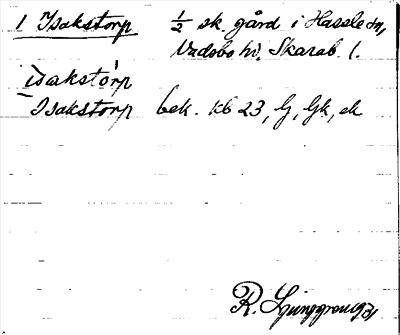 1 Isakstorp ½ sk. gård i Hassle sn,
Vadsbo hd. Skarab l.
isakstórp
Isakstorp bek. kb 23, G, Gk, ek
R. Ljunggren 1971